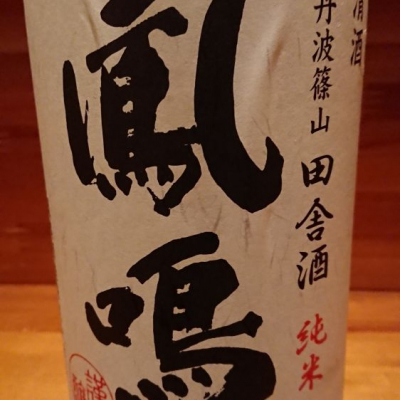 清酒
丹波篠山 田舎酒 純米
鳳鳴
謹